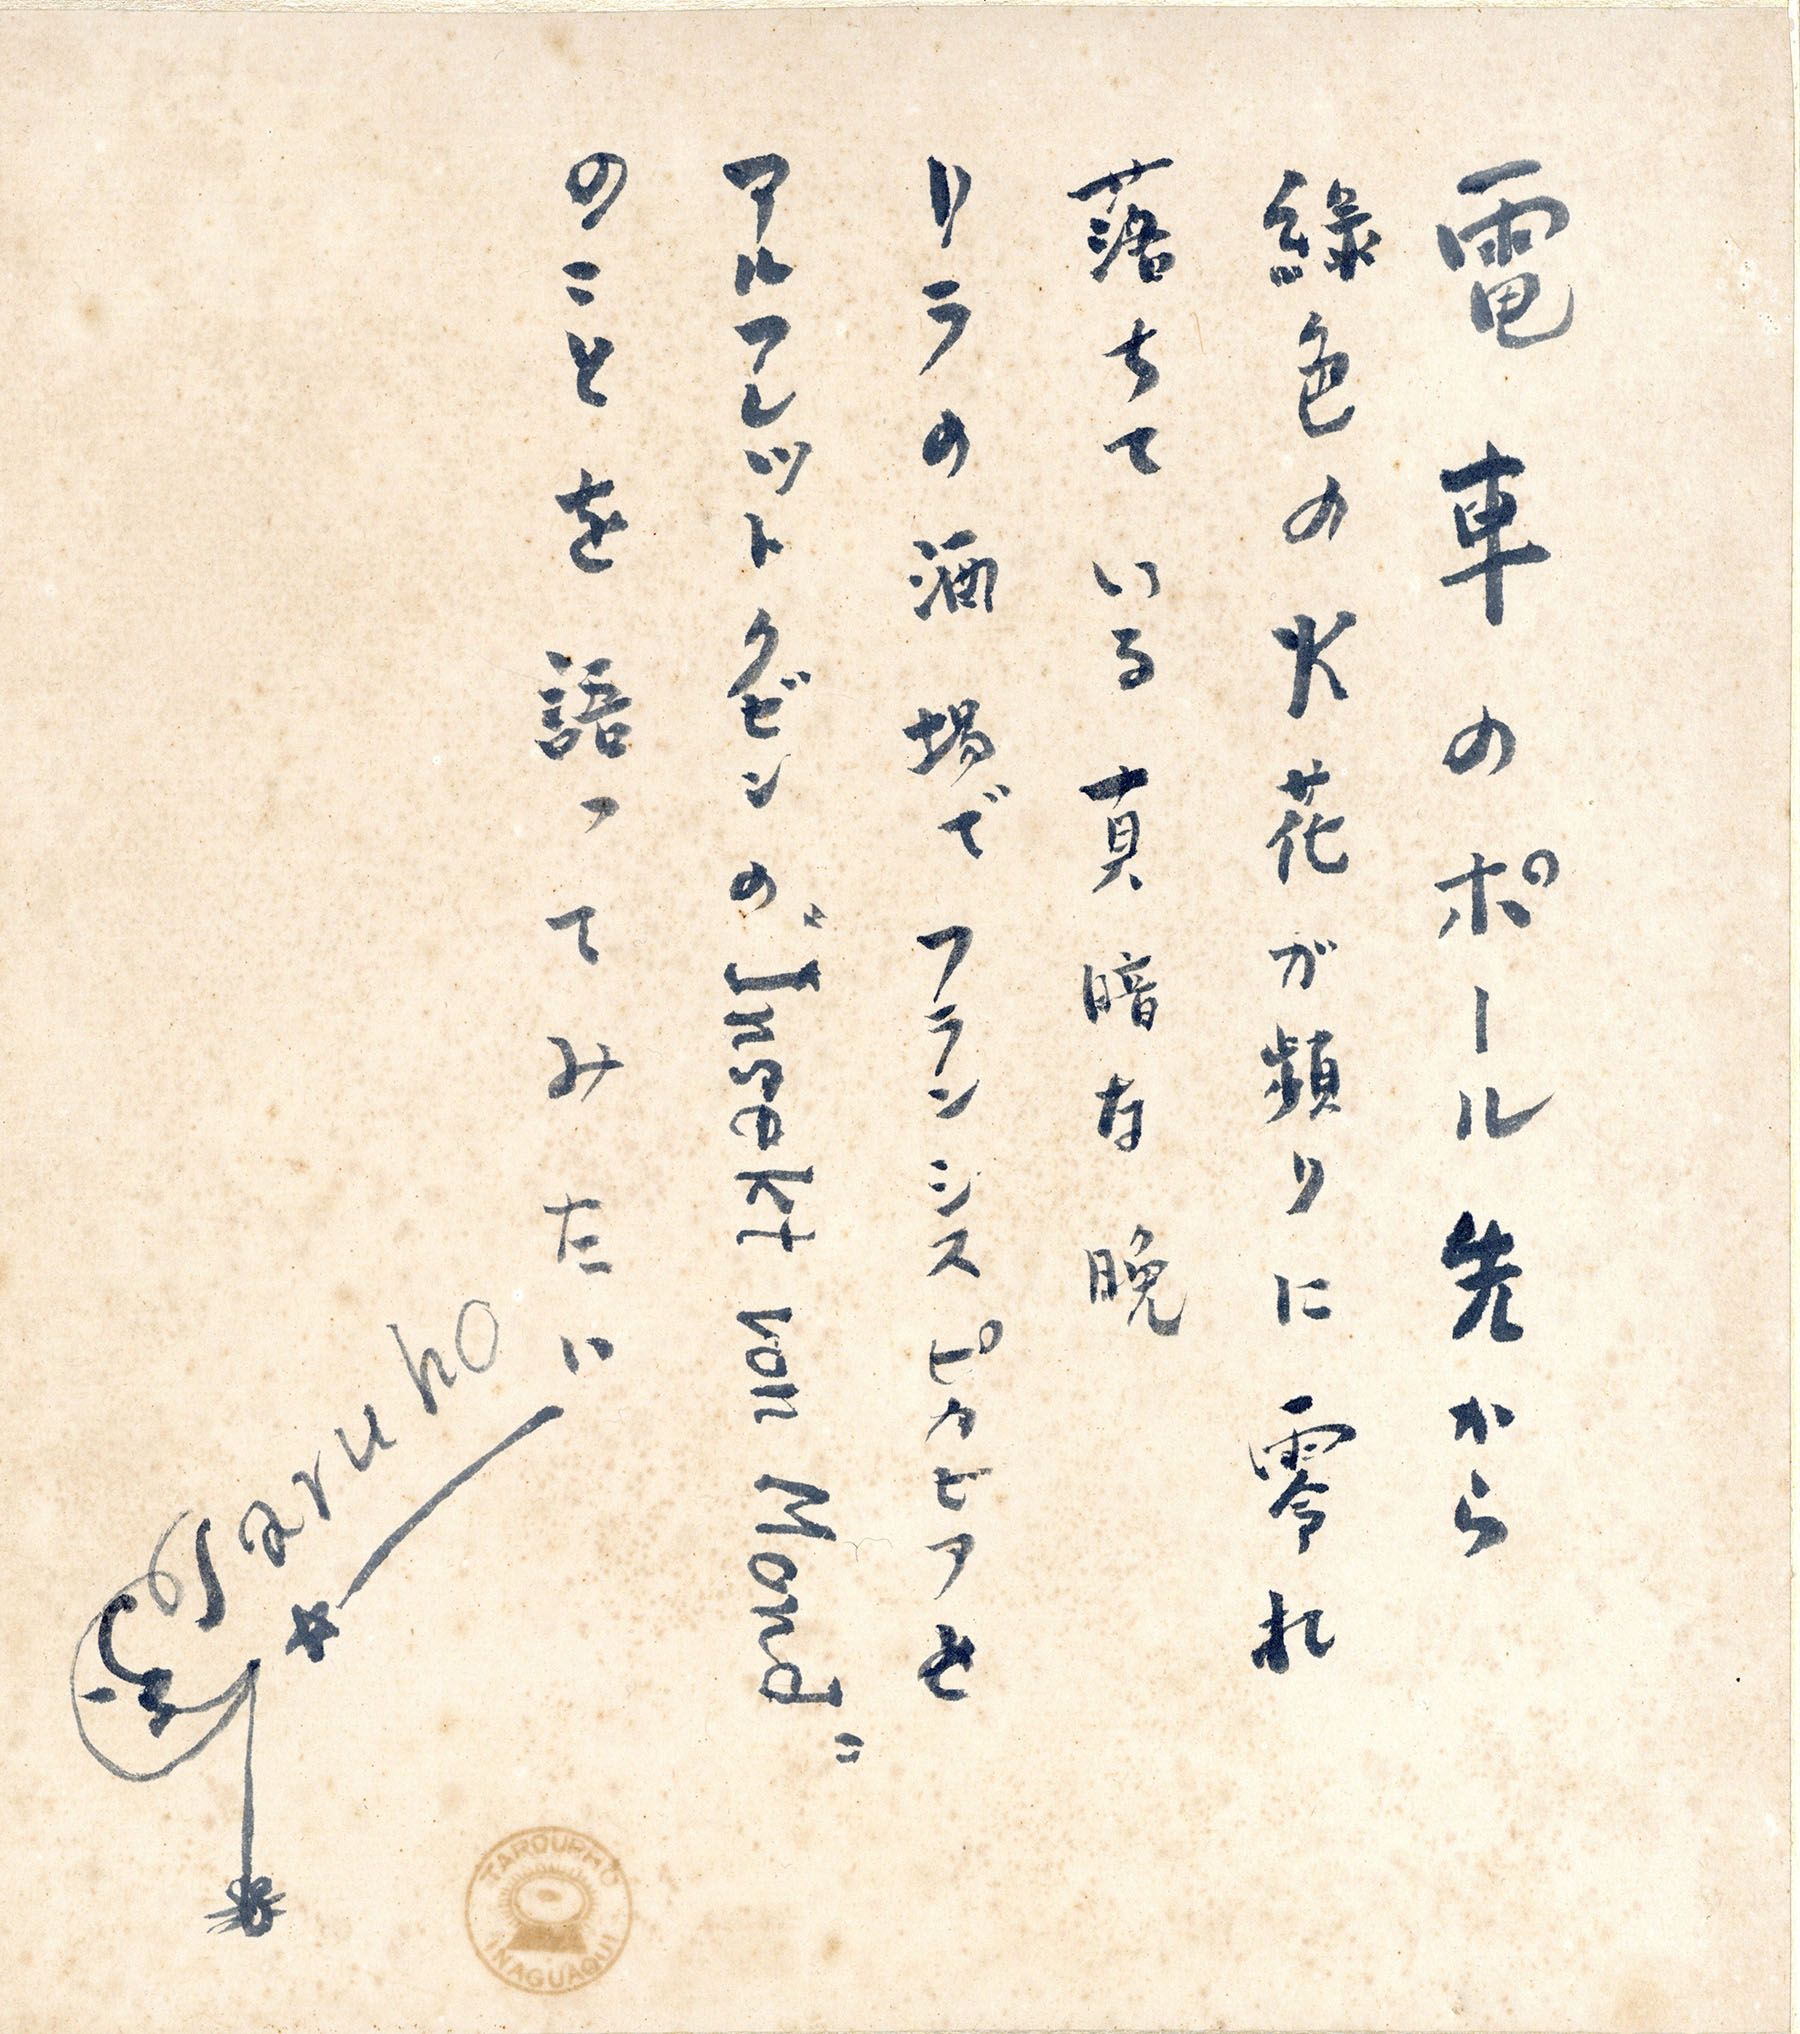 電車のポール先から
綠色の火花が頻りに零れ
落ちている真暗な晩
リラの酒場でフランシスピカビアと
アルフレットクビンの〝Insekt von Mond〟
のことを語ってみたい
Taruho
TAROUPHO
INAGUAQUI